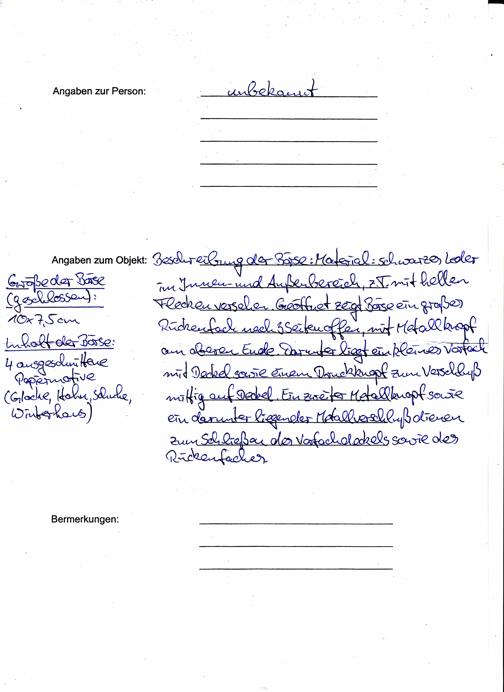 Angaben zur Person: unbekannt
Angaben zum Objekt: Beschreibung der Börse: Material: schwarzes Leder
im Innen- und Außenbereich, z.T. mit hellen
Flecken versehen. Geöffnet zeigt Börse ein großes
Rückenfach nach 3 Seiten offen, mit Metallknopf
am oberen Ende. Darunter liegt ein kleines Vorfach
mit Deckel sowie einem Druckknopf zum Verschluß
mittig auf Deckel. Ein zweiter Metallknopf sowie
ein darunter liegender Metallverschluß dienen
zum Schließen des Vorfachdeckels sowie des
Rückenfaches
Größe der Börse
(geschlossen):
10x7,5cm
Inhalt der Börse:
4 ausgeschnittene
Papiermotive
(Glocke, Hahn, Schuhe,
Winterhaus)
Bermerkungen: